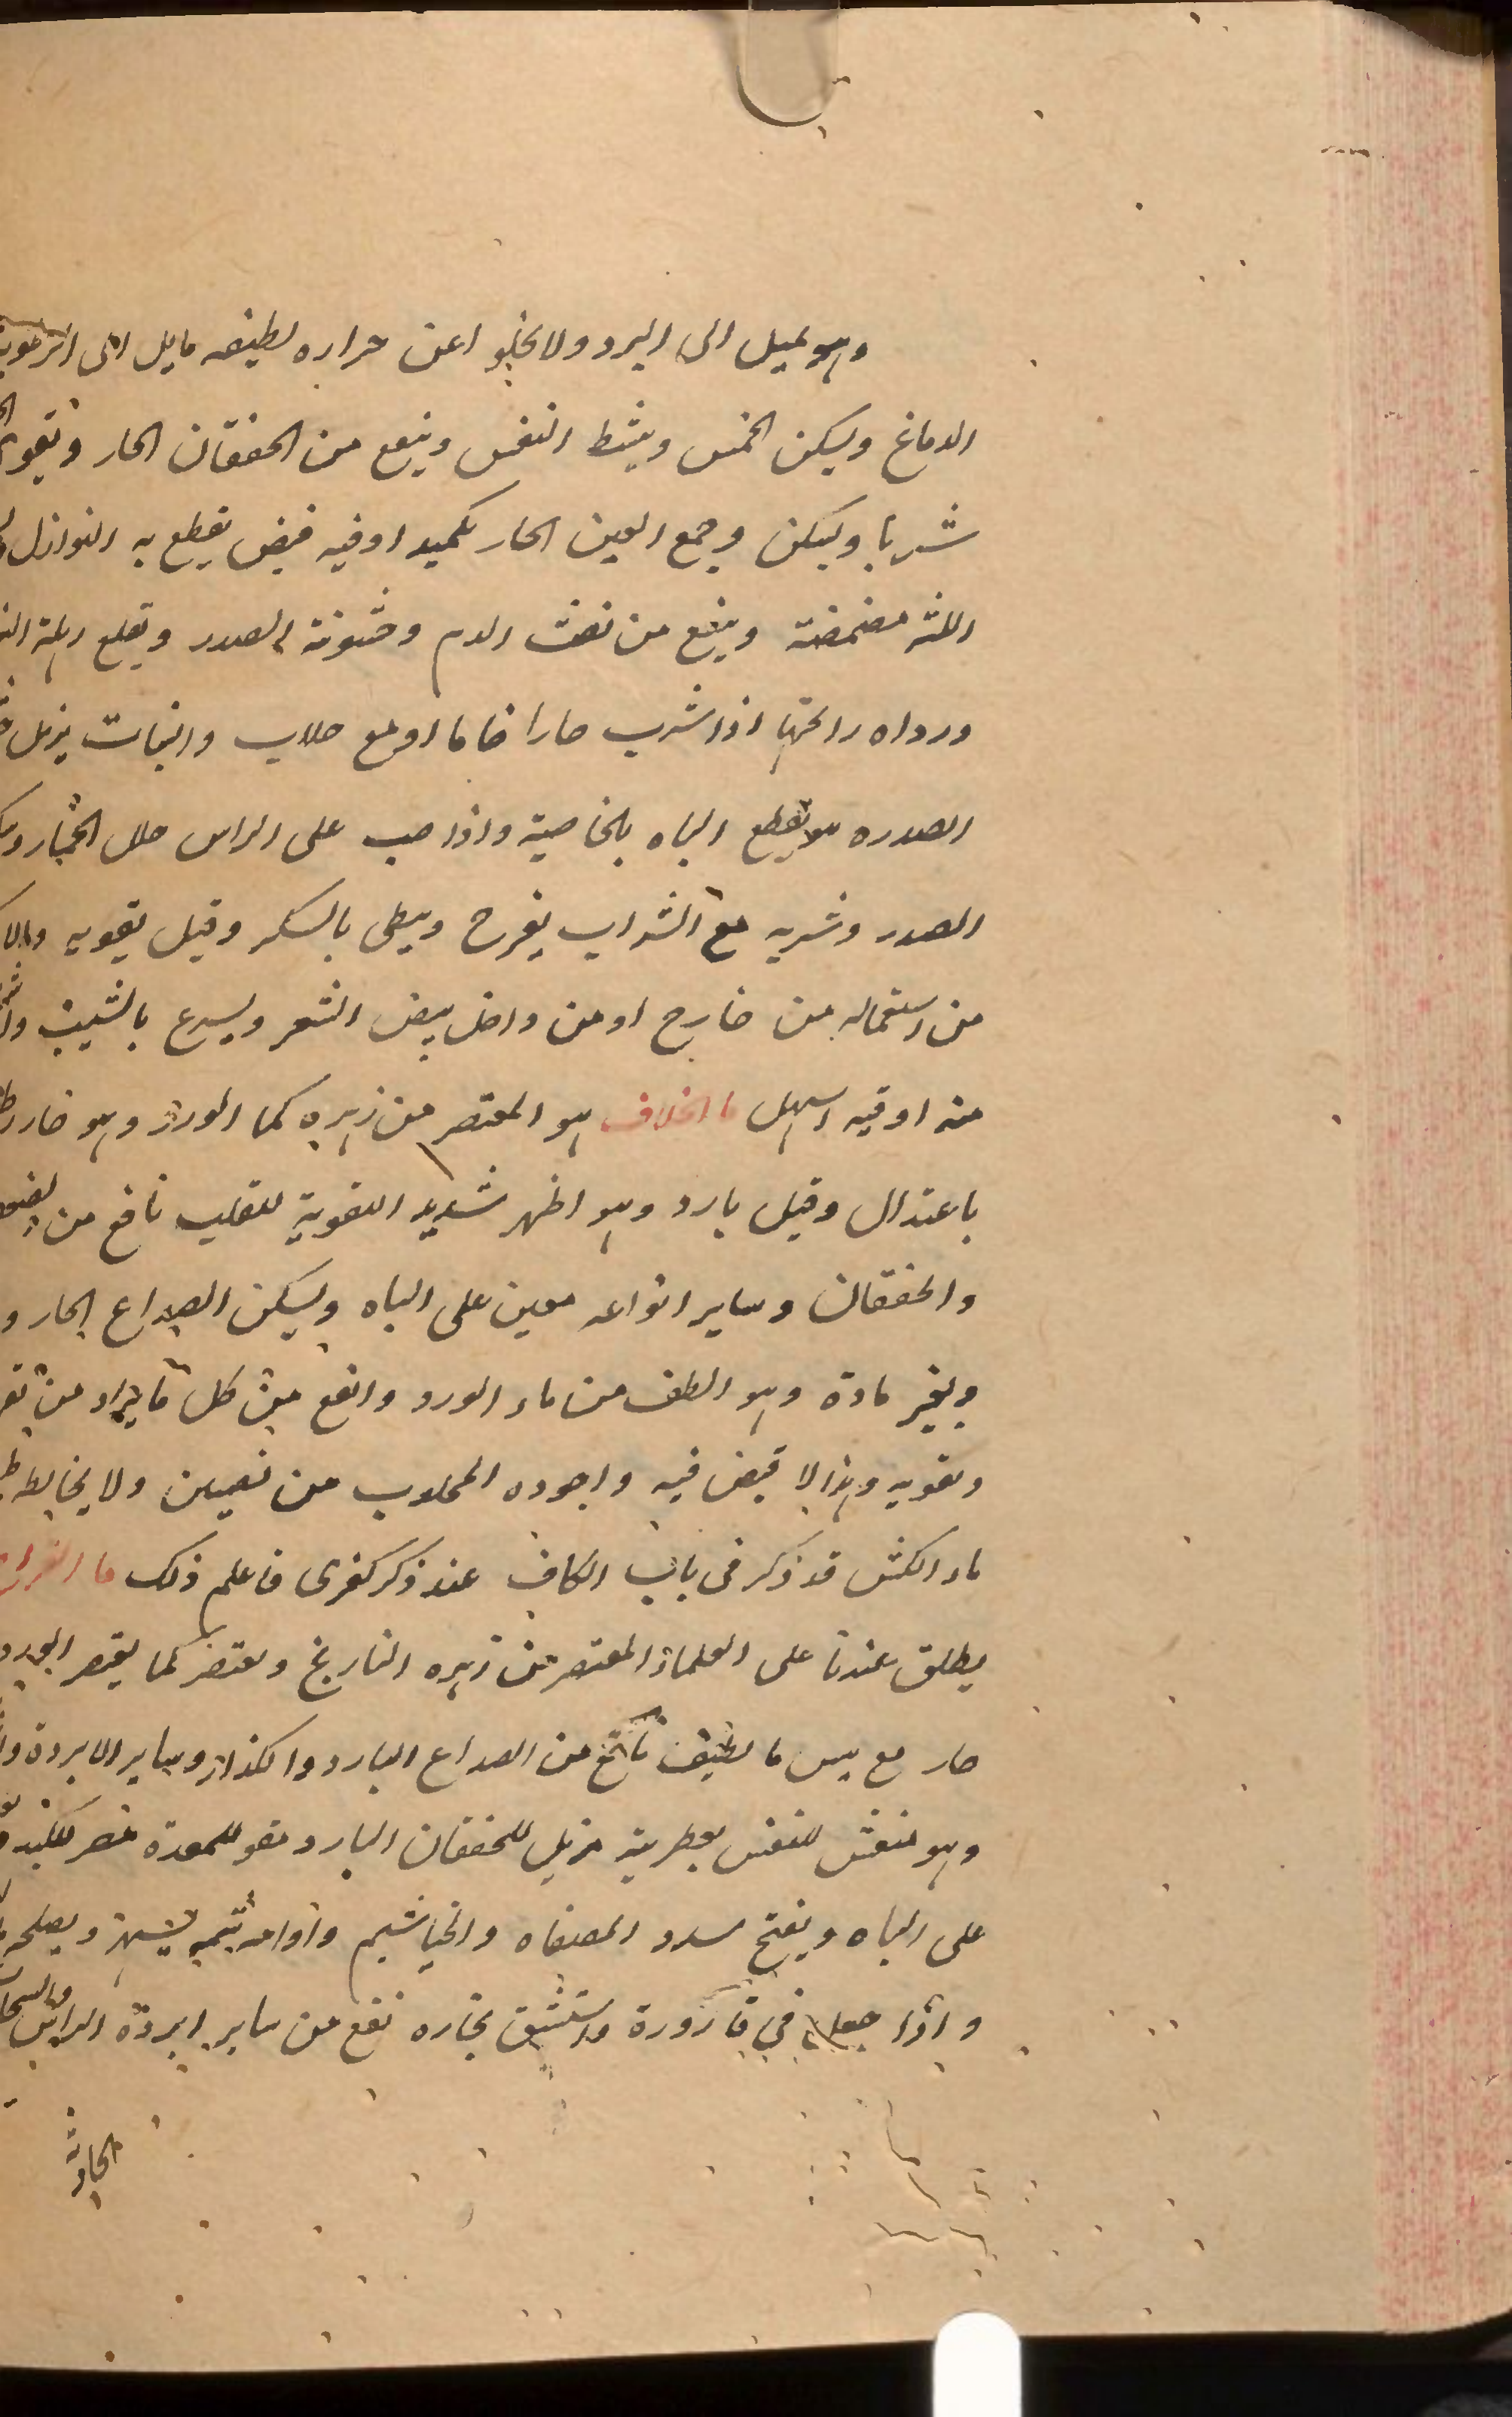 وهو يميل الى البرد ولا يخلوا عن حراره لطيفه مايل الى الرطوبة
الدماغ ويسكن الخمس وينشط النفس وينفع من الخفقان الحار ويقوى
شربا ويسكن وجع العين الحار تكميدا وفيه قبض يقطع به النوازل
اللثه مضمضة وينفع من نفث الدم وخشونة الصدر ويقلع
ورداه رائحتها اذا شرب حارا خاما او مع جلاب والنبات يزيل
الصدره ويقطع الباه بالخاصية واذا صب على الراس حلل الخمار
الصدر وشربه مع الشراب يفرح ويبطى بالسكر وقيل يقويه
من استعماله من خارج او من داخل يبيض الشعر ويسرع بالشيب
منه اوقيه اسهل ما الخلاف هو المعتصر من زهره كما الورد وهو حار
باعتدال وقيل بارد وهو اظهر شديد التقوية للقلب نافع من
والخفقان وساير انواعه معين على الباه ويسكن الصداع الحار و
وبغير مادة وهو الطف من ماء الورد وانفع من كل ما يراد من
وتقويه وهذا لا قبض فيه واجوده المجلوب من نصيبين ولا يخالطه
ماء الكش قد ذكر فى باب الكاف عند ذكر كفرى فاعلم ذلك ما
يطلق عندنا على العلماء المعتصر من زهره النارنج ويعتصر كما يعتصر الورد
حار مع يبس ما لطيف نافع من الصداع البارد والكذار وساير الابردة
وهو منعش للنفس بعطرية مزيل للخفقان البارد مقو للمعدة مضر للكبد
على الباه ويفتح سدد المصفاه والخياشيم وادامه شمه يسهر ويصلحه
واذا جعل في قارورة واستنشق بخاره نفع من ساير ابردة الراس
الحادثة